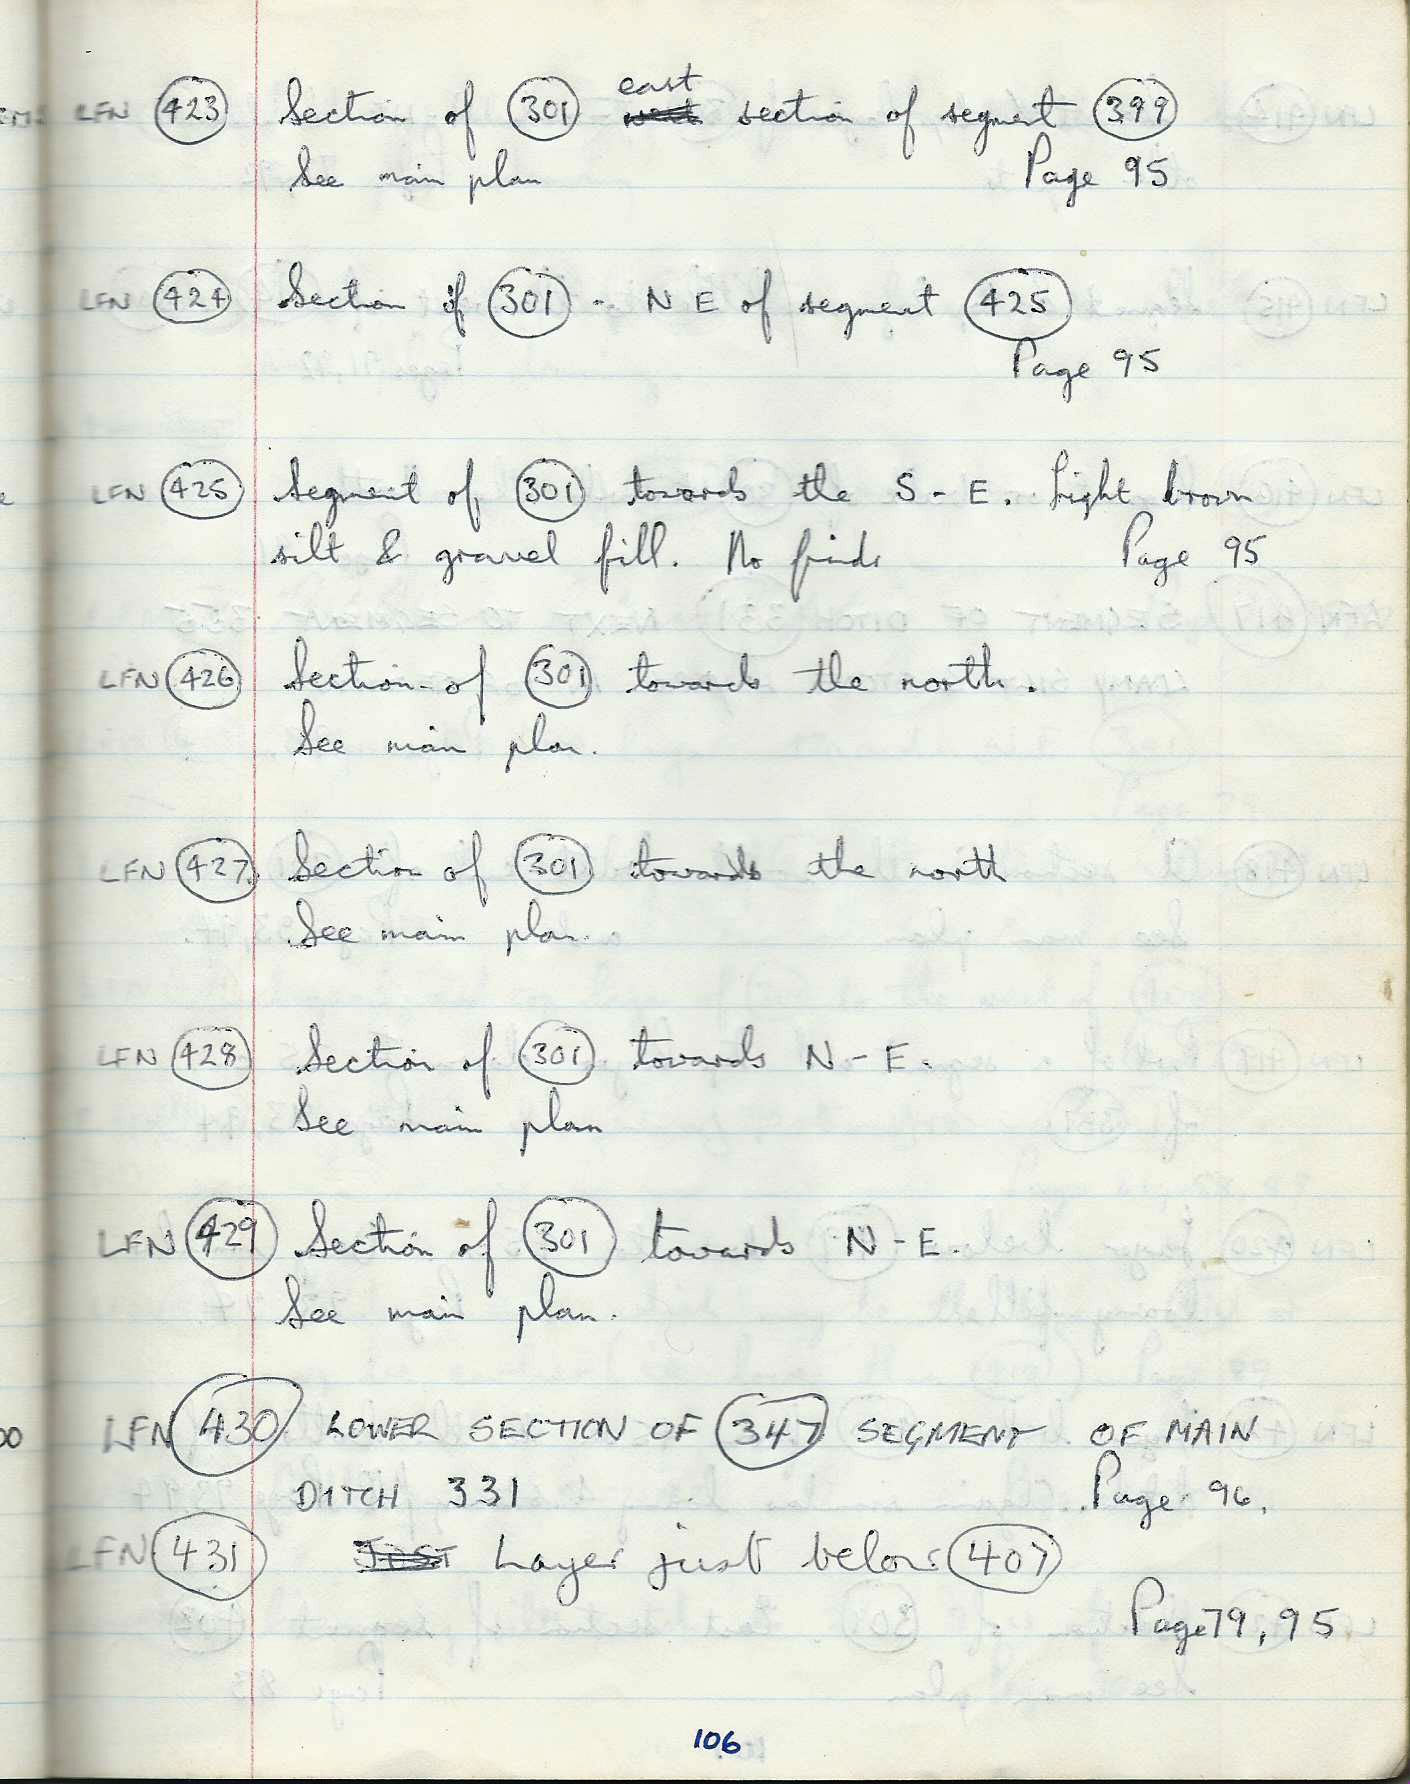 LFN 423 Section of 301 east section of segment 399
See main plan Page 95
LFN 424 Section of 301 - N E of segment 425
Page 95
LFN 425 Segment of 301 towards the S - E. Light brown
silt & gravel fill. No finds Page 95
LFN 426 Section of 301 towards the north.
See main plan.
LFN 427 Section of 301 towards the north
See main plan.
LFN 428 Section of 301 towards N - E.
See main plan
LFN 429 Section of 301 towards N - E.
See main plan.
LFN 430 LOWER SECTION OF 347 SEGMENT OF MAIN
DITCH 331 Page 96.
LFN 431 Layer just below 407
Page 79, 95
106